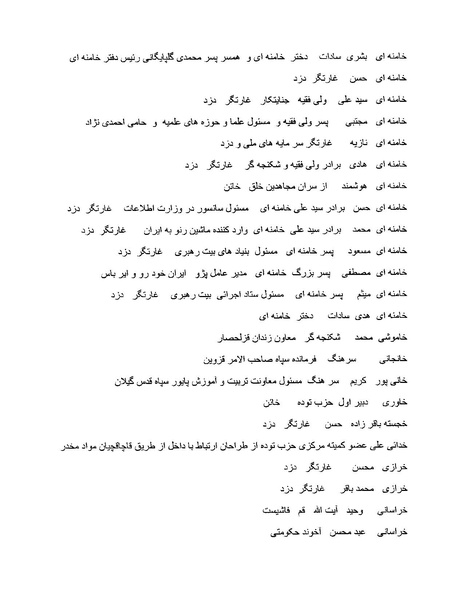 خامنه ای   بشری  سادات   دختر  خامنه ای و  همسر پسر محمدی گلپایگانی رئیس دفتر خامنه ای
خامنه ای   حسن    غارتگر   دزد
خامنه ای   سید علی    ولی فقیه   جنایتکار   غارتگر   دزد
خامنه ای   مجتبی    پسر ولی فقیه و  مسئول علما و حوزه های علمیه  و  حامی احمدی نژاد
خامنه ای   نازیه    غارتگر سر مایه های ملی و دزد
خامنه ای   هادی   برادر ولی فقیه و شکنجه گر    غارتگر   دزد
خامنه ای   هوشمند    از سران مجاهدین خلق   خائن
خامنه ای  حسن   برادر سید علی خامنه ای   مسئول سانسور در وزارت اطلاعات    غارتگر  دزد
خامنه ای  محمد   برادر سید علی  خامنه ای  وارد کننده ماشین رنو به ایران     غارتگر   دزد
خامنه ای  مسعود    پسر خامنه ای   مسئول  بنیاد های بیت رهبری   غارتگر   دزد
خامنه ای  مصطفی    پسر بزرگ  خامنه ای   مدیر عامل پژو   ایران خود رو و ایر باس
خامنه ای  میثم    پسر خامنه ای    مسئول ستاد اجرائی  بیت رهبری    غارتگر   دزد
خامنه ای  هدی  سادات    دختر  خامنه ای
خاموشی  محمد    شکنجه گر   معاون زندان قزلحصار
خانجانی       سرهنگ   فرمانده سپاه صاحب الامر قزوین
خانی پور   کریم   سر هنگ  مسئول معاونت تربیت و آموزش پایور سپاه قدس گیلان
خاوری     دبیر اول  حزب توده     خائن
خجسته باقر زاده   حسن    غارتگر   دزد
خدائی علی عضو کمیته مرکزی حزب توده از طراحان ارتباط با داخل از طریق قاچاقچیان مواد مخدر
خرازی   محسن     غارتگر   دزد
خرازی   محمد باقر    غارتگر  دزد
خراسانی    وحید   آیت الله   قم   فاشیست
خراسانی    عبد محسن   آخوند حکومتی